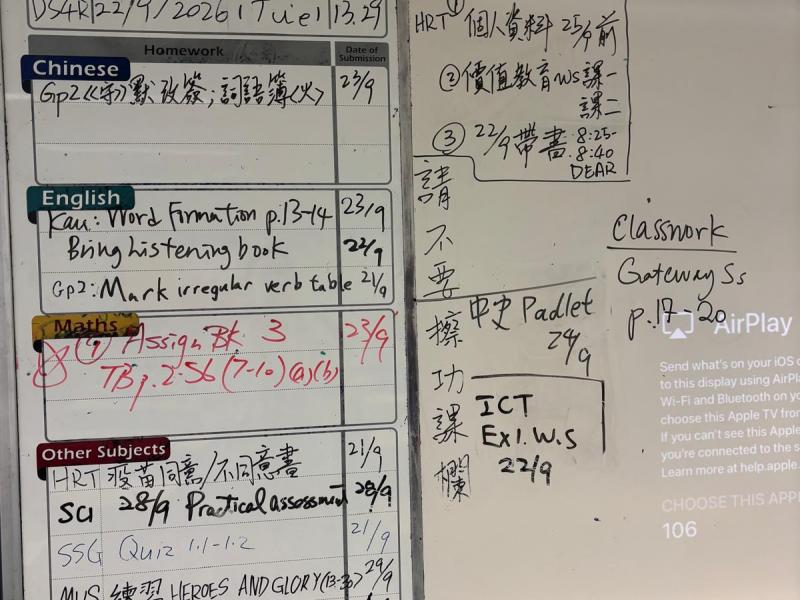 DS4R 22/9/2026 (Tue) 13.29
Homework
Date of Submission
Chinese
Gp2《守》默改簽；詞語簿<火> 23/9
English
Kau: Word Formation p.13-14 23/9
Bring Listening book 22/9
Gp2: Mark irregular verb table 21/9
Maths
① Assign Bk 3 23/9
TB p.2.56 (7-10)(a)(b)
Other Subjects
HRT 疫苗同意/不同意書 21/9
Sci 28/9 Practical assessment 28/9
SSG Quiz 1.1-1.2 21/9
MUS 練習 HEROES AND GLORY (13-30) 29/9
HRT ① 個人資料 25/9前
② 價值教育 WS 課一
課二
③ 22/9 帶書 8:25-
8:40
DEAR
請不要擦功課欄
中史 Padlet
24/9
ICT
Ex1. W.S
22/9
Classwork
Gateway Ss
p.17-20
AirPlay
Send what's on your iOS
to this display using AirPla
Wi-Fi and Bluetooth on yo
choose this Apple TV from
If you can't see this Apple
you're connected to the s
Learn more at help.apple.
CHOOSE THIS APPL
106